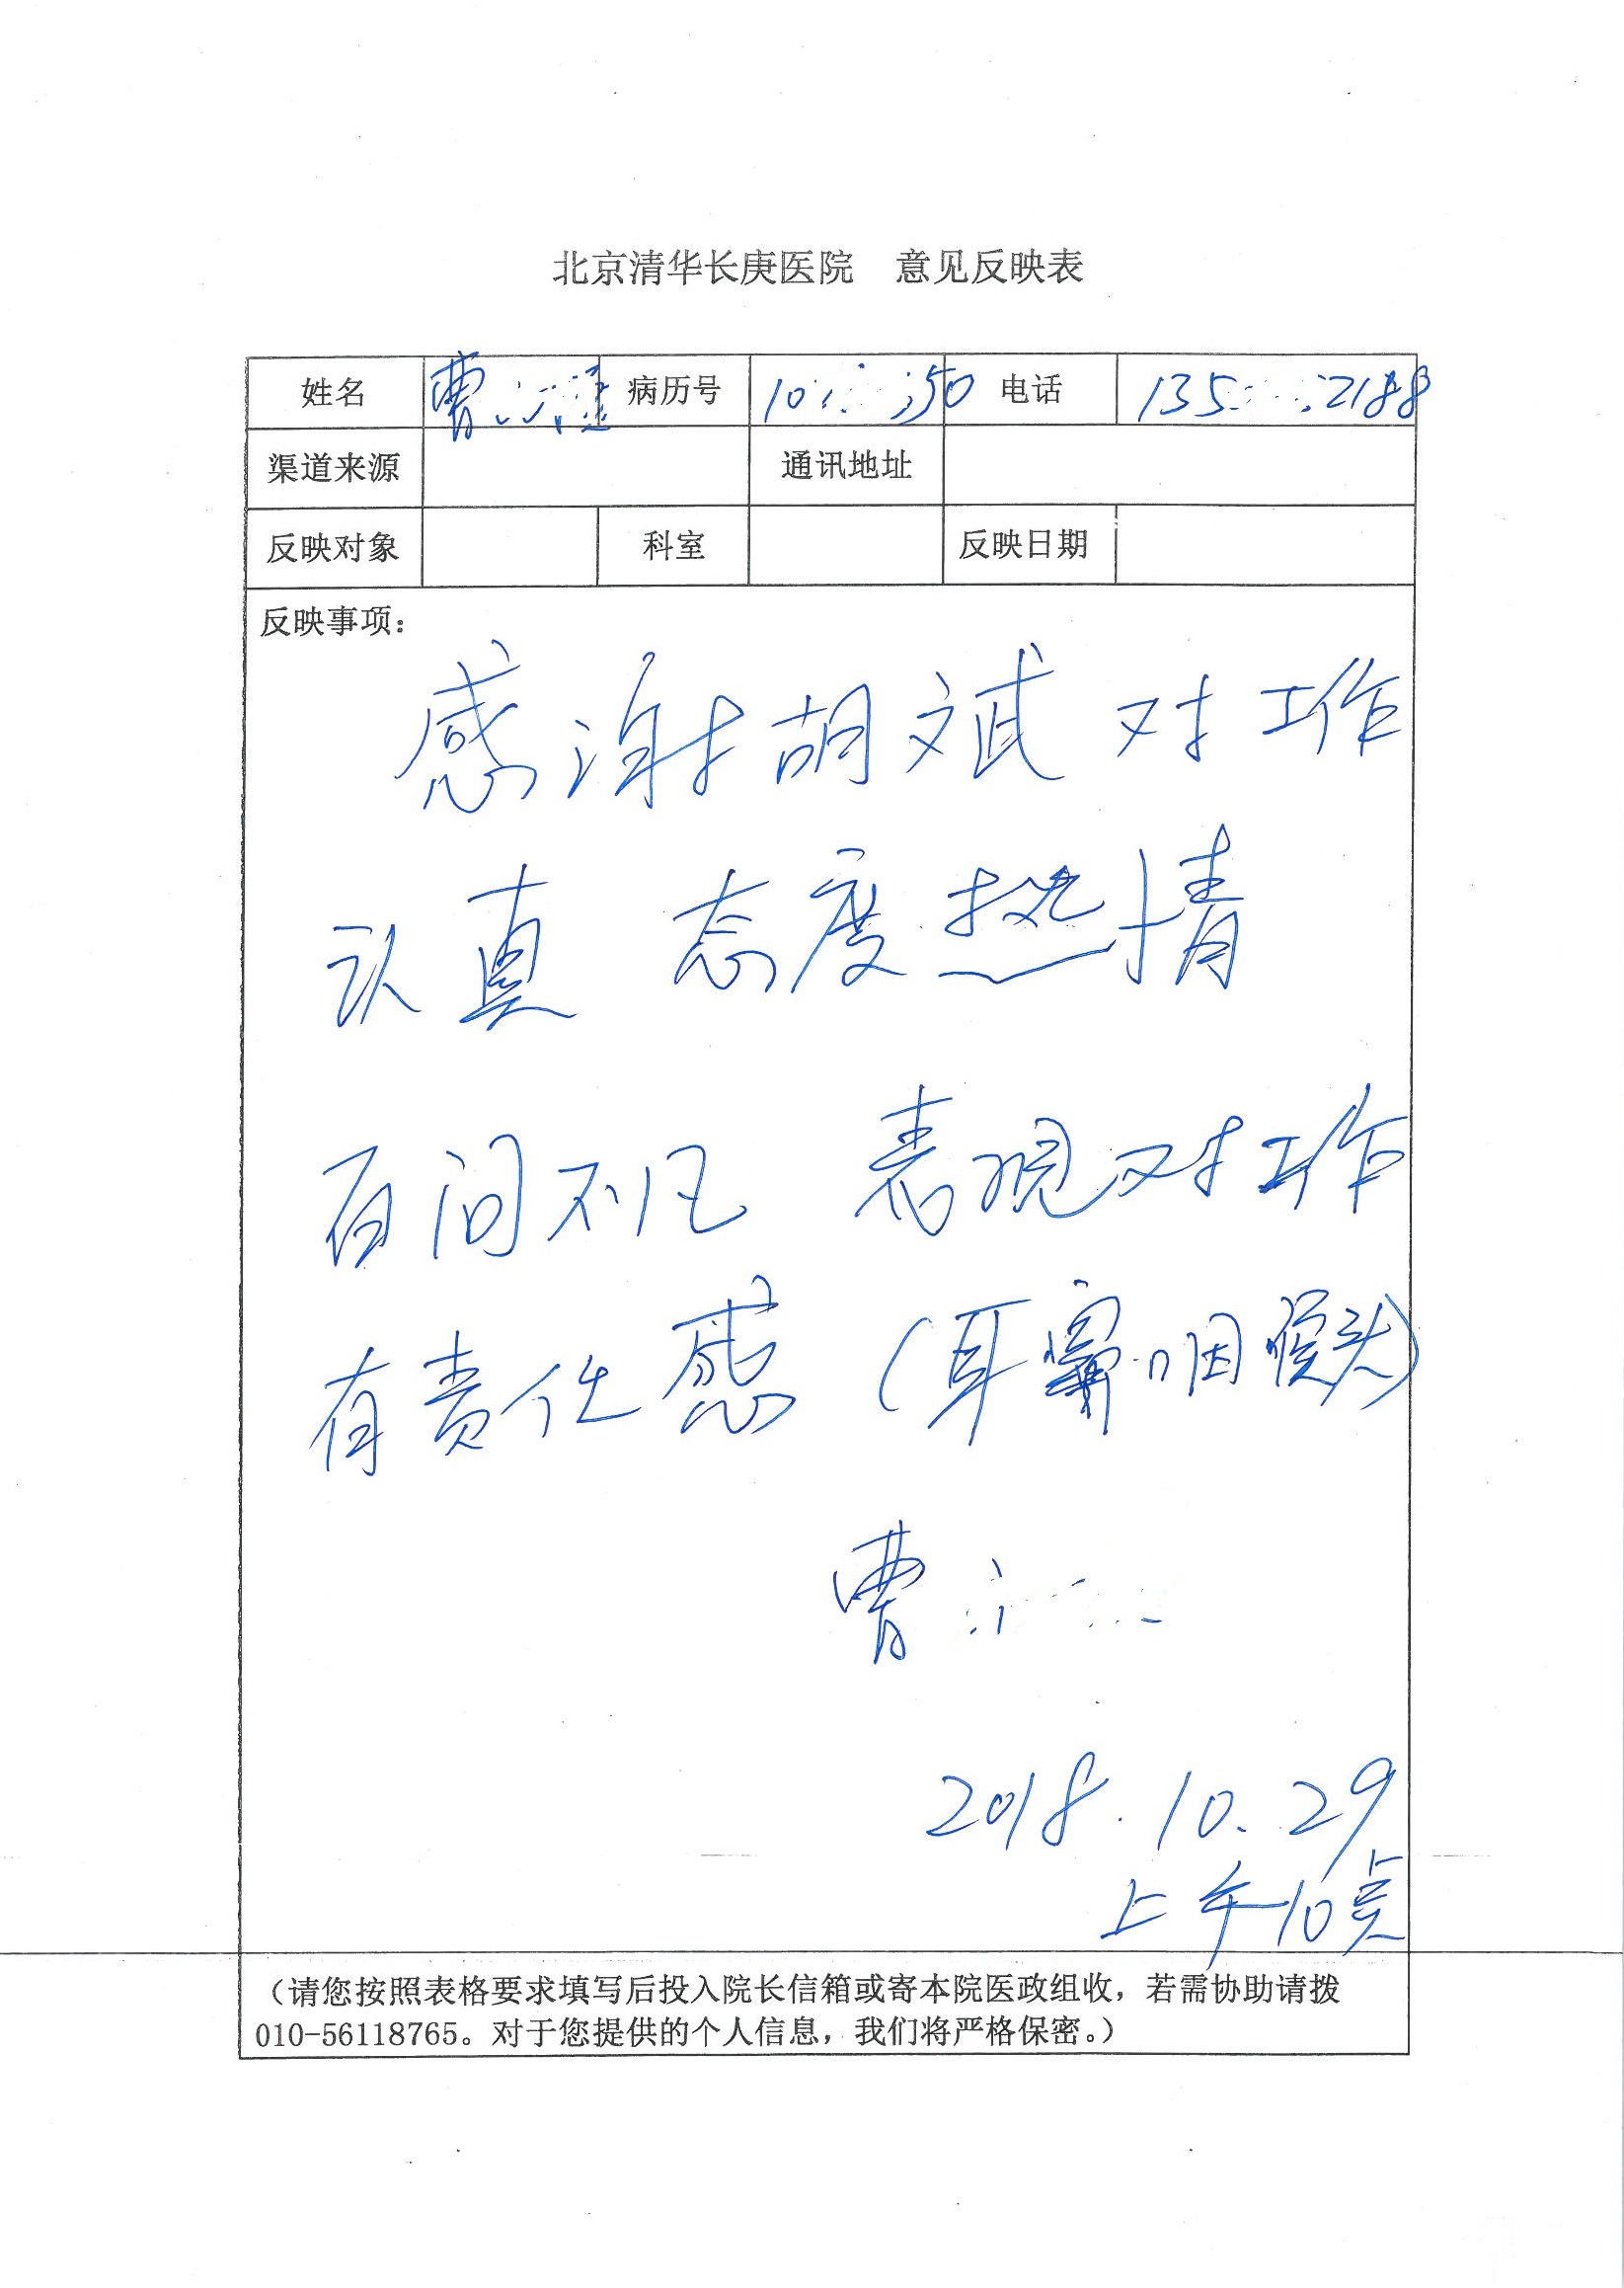 北京清华长庚医院 意见反映表
姓名 曹 病历号 10 50 电话 135 2188
渠道来源 通讯地址
反映对象 科室 反映日期
反映事项:
感谢胡斌对工作
认真 态度热情
百问不 表现对工作
有责任感(耳鼻咽喉头)
曹
2018.10.29
上午10点
(请您按照表格要求填写后投入院长信箱或寄本院医政组收,若需协助请拨
010-56118765。对于您提供的个人信息,我们将严格保密。)